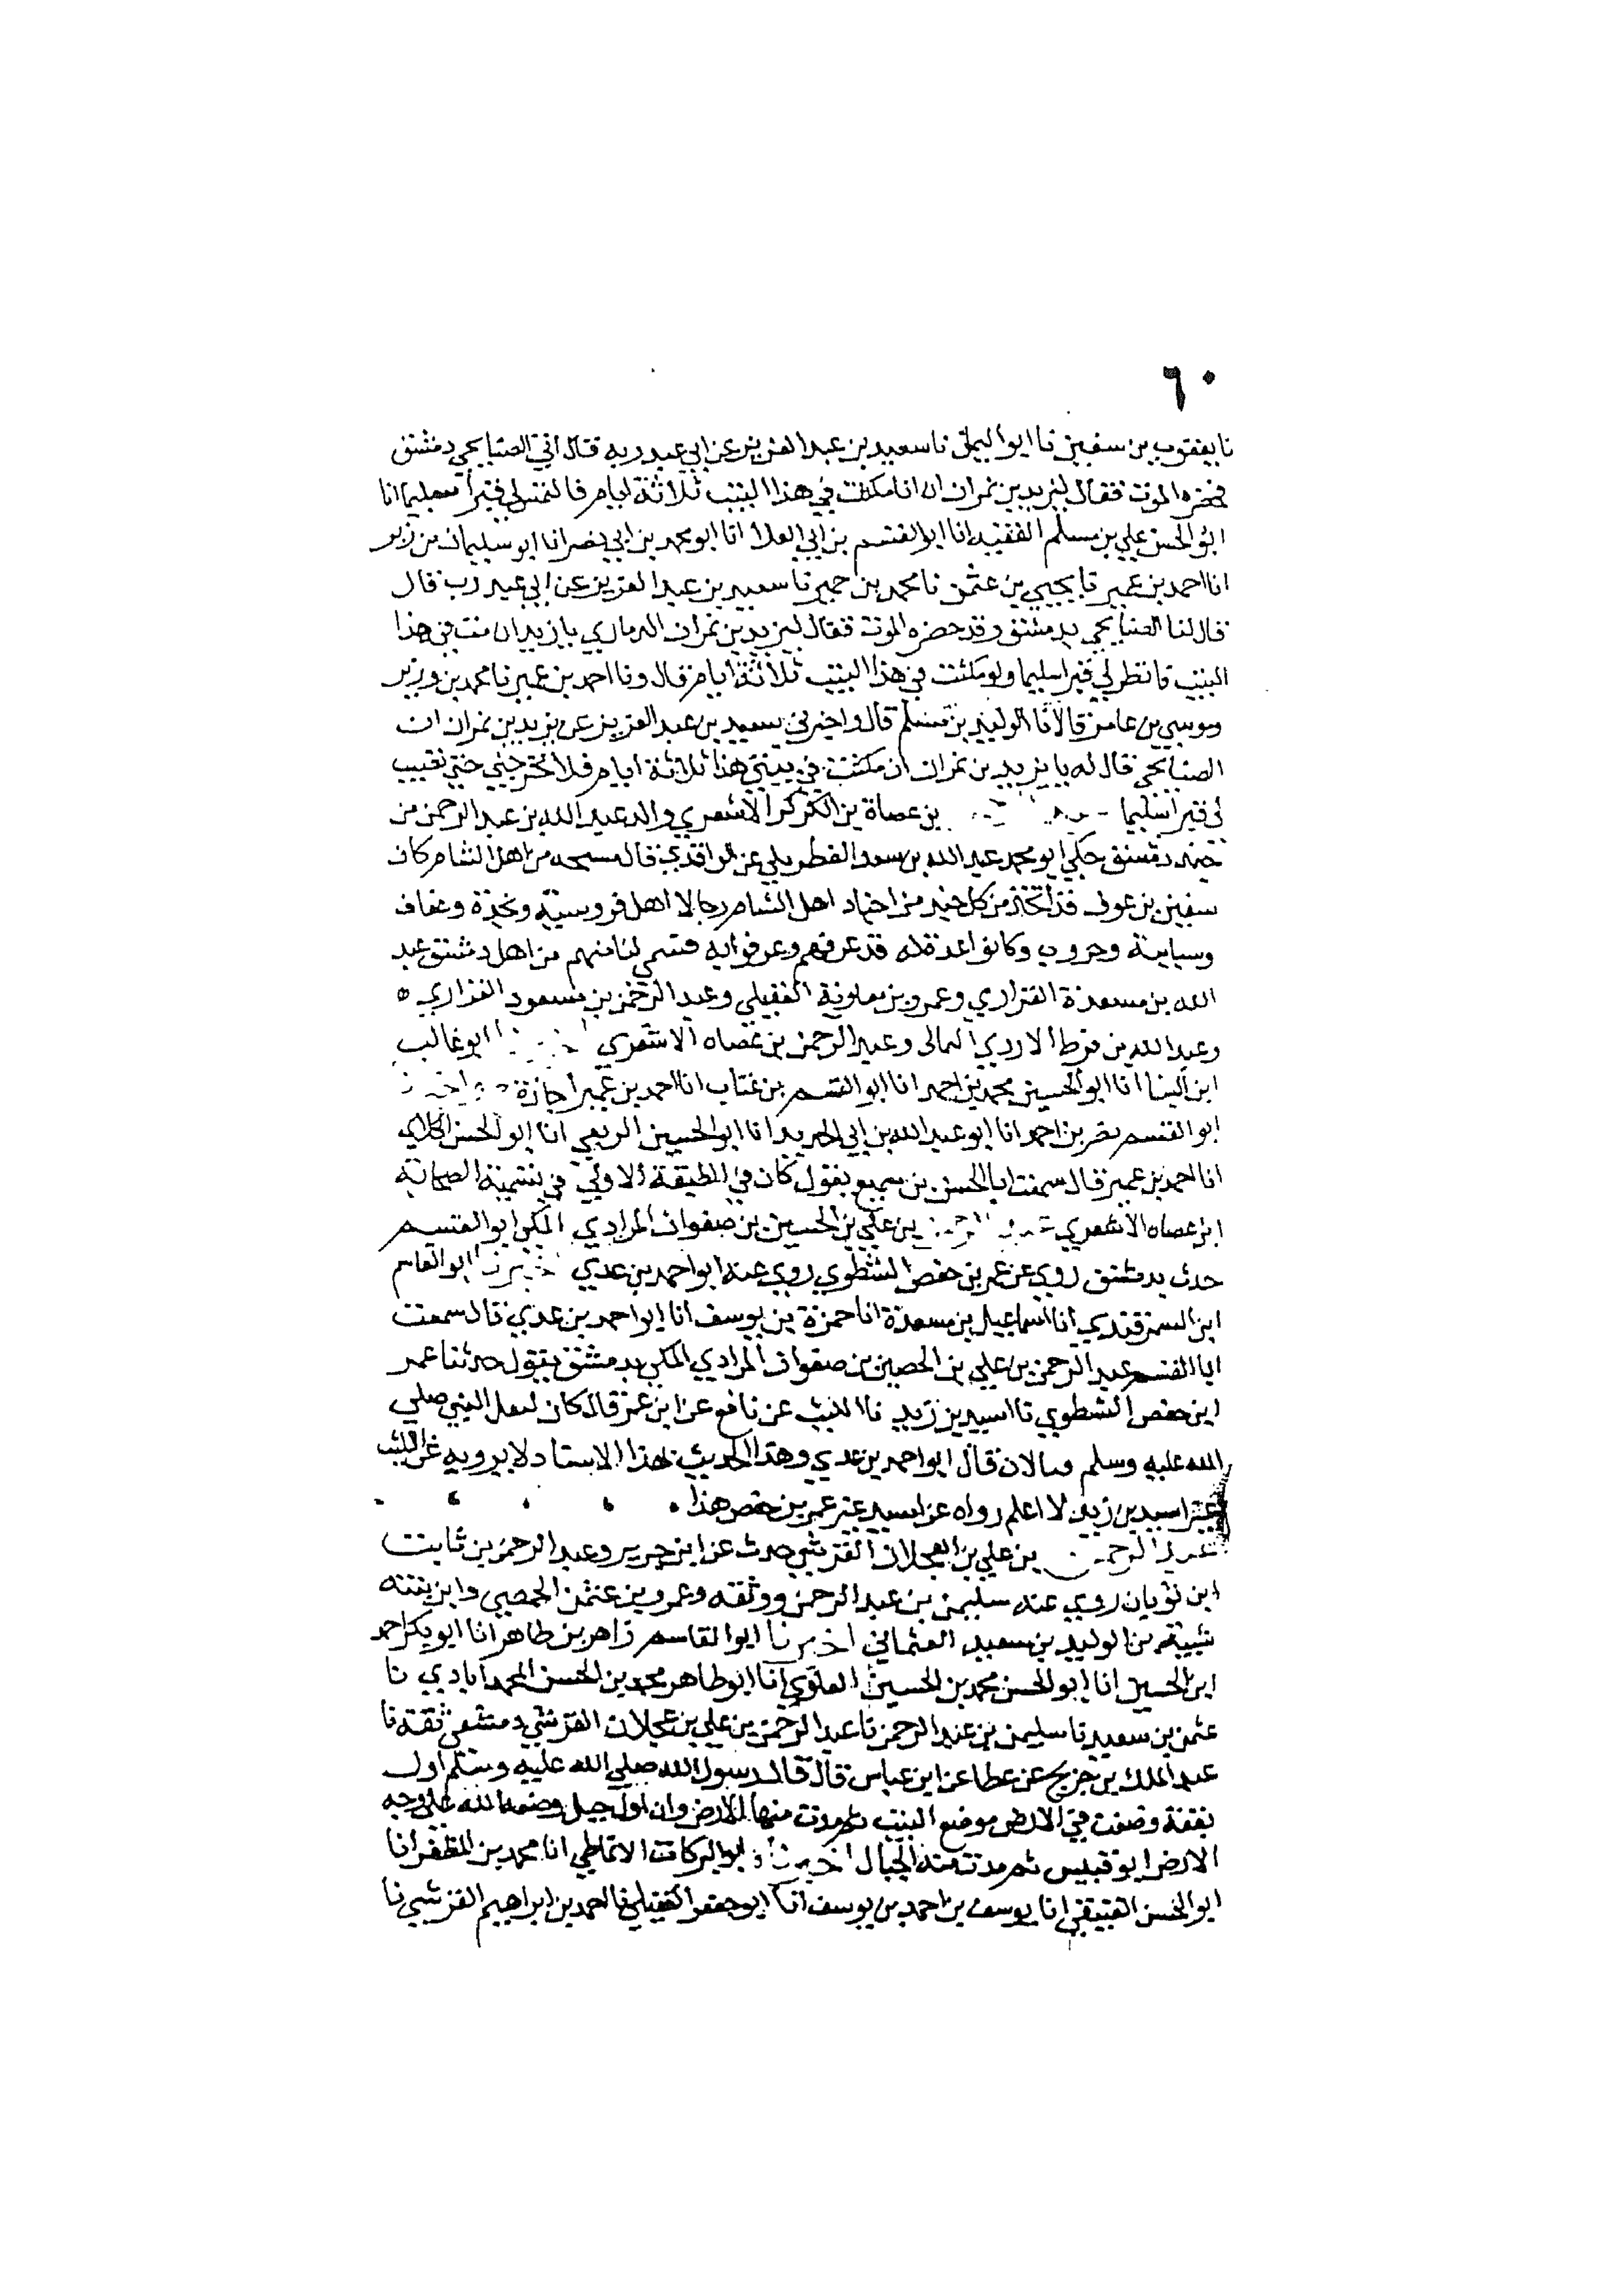 ٦٠
نا يعقوب بن سفين نا ابو اليمن نا سعيد بن عبد العزيز عن ابي عبد ربه قال اتي الصنابحي دمشق
فحضره الموت فقال ليزيد بن نمران ان انا مكثت في هذا البيت ثلاثة ايام فالتمس لي قبرا سهليا انا
ابو الحسن علي بن مسلم الفقيه انا ابو القسم بن ابي العلا انا ابو محمد بن ابي نصر انا ابو سليمان من زبر
انا احمد بن عمير نا يحيي بن عثمن نا محمد بن حمير نا سعيد بن عبد العزيز عن ابي عبد رب قال
قال لنا الصنابحي بدمشق وقد حضره الموت فقال ليزيد بن نمران الدماري يا يزيد ان مت في هذا
البيت فانظر لي قبرا سليما ولو مكثت في هذا البيت ثلاثة ايام قال ونا احمد بن عمير نا محمد بن وزير
وموسي بن عامر قالا نا الوليد بن مسلم قال واخبرني سعيد بن عبد العزيز عن يزيد بن نمران ان
الصنابحي قال له يا يزيد بن نمران ان مكثت في بيتي هذا ثلاثة ايام فلا تخرجني حتي تصيب
لي قبرا سليما بن عصاة بن الكركر الاشعري والد عبد الله بن عبد الرحمن من
جند دمشق حكي ابو محمد عبد الله بن سعد القطربلي عن الواقدي قال مسبحه من اهل الشام كان
سفين بن عوف قد اتخذ من كل جند من اجناد اهل الشام رجالا اهل فروسية ونجدة وعفاف
وسياسة وحروب وكانوا عدة له قد عرفهم وعرفوا به فسمي لنا منهم من اهل دمشق عبد
الله بن مسعدة الفزاري وعمرو بن معاوية العقيلي وعبد الرحمن بن مسعود الفزاري ه
وعبد الله بن قرط الازدي الثمالي وعبد الرحمن بن عصاه الاشعري ابو غالب
ابن البنا انا ابو الحسين محمد بن احمد انا ابو القسم بن عتاب انا احمد بن عمير اجازة
ابو القسم نصر بن احمد انا ابو عبد الله بن ابي الحديد انا ابو الحسين الربعي انا ابو الحسن الكلابي
انا احمد بن عمير قال سمعت ابا الحسن بن سميع يقول كان في الطبقة الاولي في تسمية الصحابة
ابن عصاه الاشعري عبد الرحمن بن علي بن الحسين بن صفوان المرادي المكي ابو القسم
حدث بدمشق روي عن عمر بن حفص الشطوي روي عنه ابو احمد بن عدي اخبرنا ابو القاسم
ابن السمرقندي انا اسماعيل بن مسعدة انا حمزة بن يوسف انا ابو احمد بن عدي قال سمعت
ابا القسم عبد الرحمن بن علي بن الحصين بن صفوان المرادي المكي بدمشق يقول حدثنا عمر
ابن حفص الشطوي نا اسيد بن زيد نا الليث عن نافع عن ابن عمر قال كان لنعل النبي صلي
الله عليه وسلم قبالان قال ابو احمد بن عدي وهذا الحديث بهذا الاسناد لا يرويه عن الليث
غير اسيد بن زيد لا اعلم رواه عن اسيد غير عمر بن حفص هذا
عبد الرحمن بن علي بن العجلان القرشي حدث عن ابن جريج وعبد الرحمن بن ثابت
ابن ثوبان روي عنه سليمن بن عبد الرحمن ووثقه وعمرو بن عثمن الحمصي وابن بنته
شيبة بن الوليد بن سعيد العثماني اخبرنا ابو القاسم زاهر بن طاهر انا ابو بكر احمد
ابن الحسين انا ابو الحسن محمد بن الحسين العلوي انا ابو طاهر محمد بن الحسن المحمداباذي نا
عثمن بن سعيد نا سليمن بن عبد الرحمن نا عبد الرحمن بن علي بن عجلان القرشي دمشقي ثقة نا
عبد الملك بن جريج عن عطا عن ابن عباس قال قال رسول الله صلي الله عليه وسلم اول
بقعة وضعت في الارض موضع البيت ثم مدت منها الارض وان اول جبل وضعه الله علي وجه
الارض ابو قبيس ثم مدت منه الجبال اخبرنا ابو البركات الانماطي انا محمد بن المظفر انا
ابو الحسن العتيقي انا يوسف بن احمد بن يوسف انا ابو جعفر العقيلي نا احمد بن ابراهيم القرشي نا